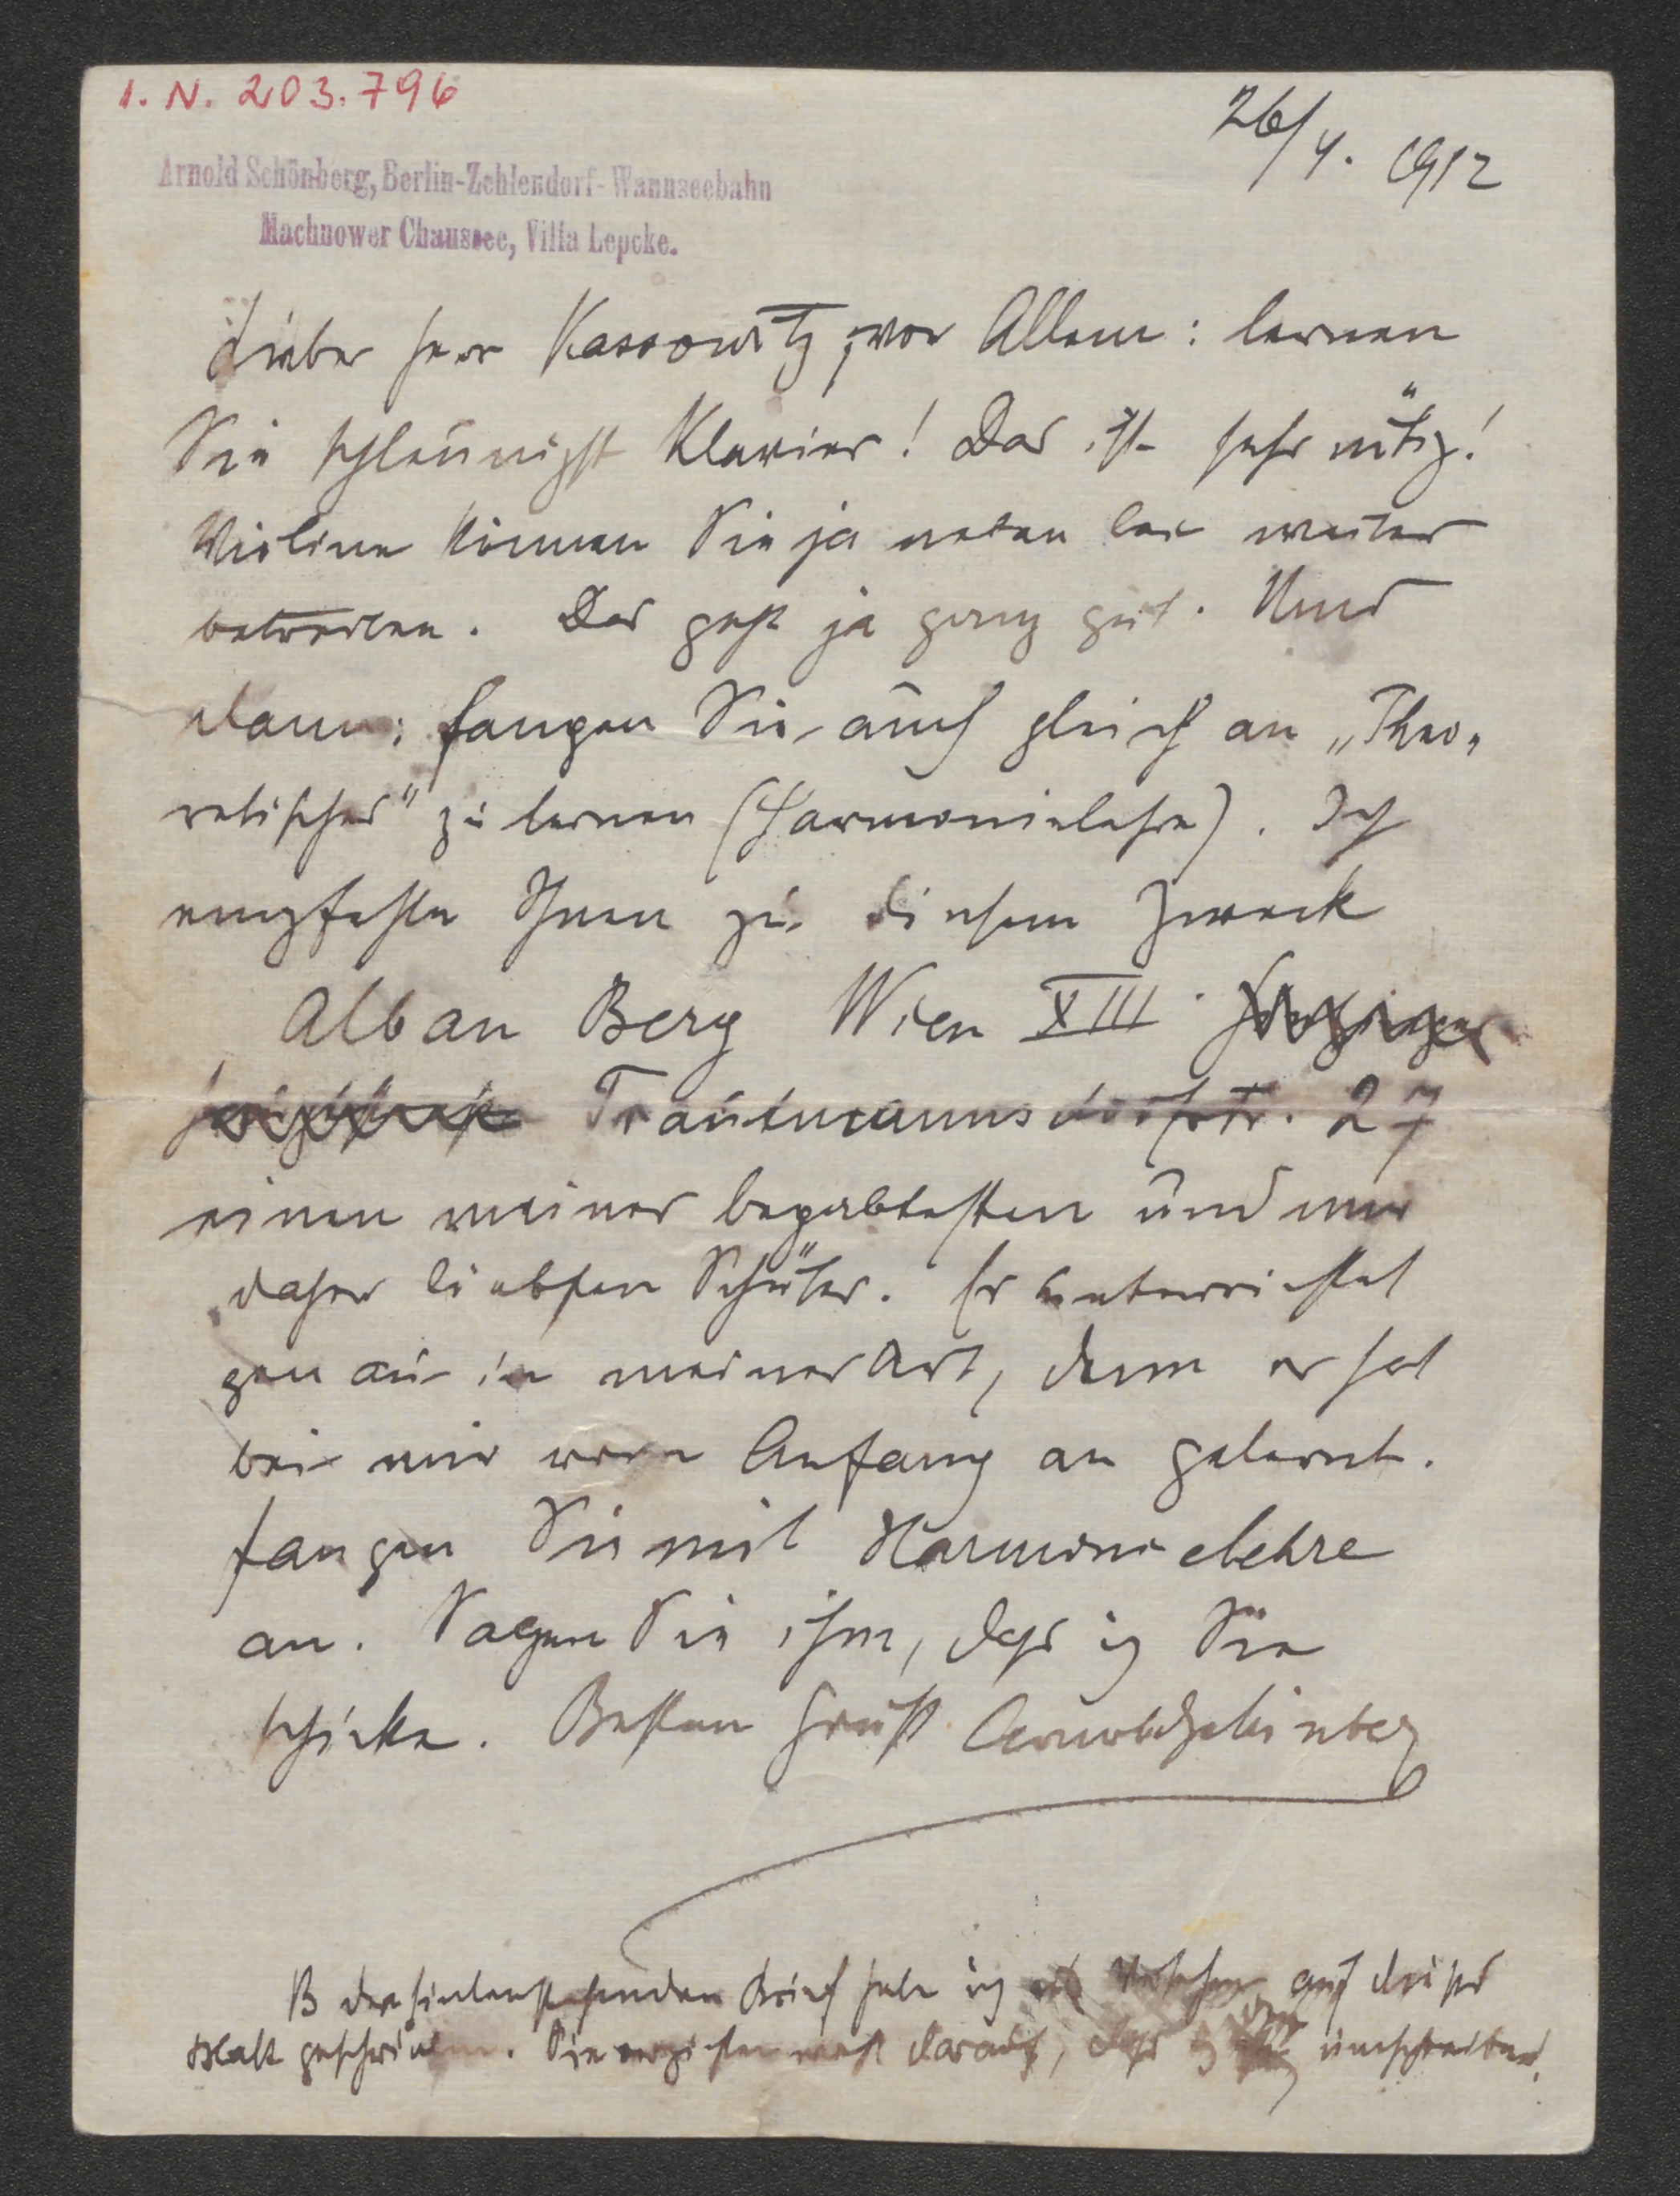 I. N. 203.796
26/4. 1912
Arnold Schönberg, Berlin-Zehlendorf-Wannseebahn
Machnower Chaussee, Villa Lepcke.
Lieber Herr Kassowitz, vor Allem: lernen
Sie schleunigst Klavier! Das ist sehr nötig!
Violine können Sie ja nebenbei weiter
betreiben. Das geht ja ganz gut. Und
dann: fangen Sie auch gleich an „Theo-
retisches" zu lernen (Harmonielehre). Ich
empfehle Ihnen zu diesem Zweck
Alban Berg Wien XIII.
Trautmannsdorfstr. 27
einen meiner begabtesten und mir
daher liebsten Schüler. Er unterrichtet
genau in meiner Art, denn er hat
bei mir vom Anfang an gelernt.
Fangen Sie mit Harmonielehre
an. Sagen Sie ihm, dass ich Sie
schicke. Besten Gruß Arnold Schönberg
den hintenstehenden Brief habe ich aus Versehen auf dieses
Blatt geschrieben. Sie verzichten wohl darauf, dass ich umschreibe.